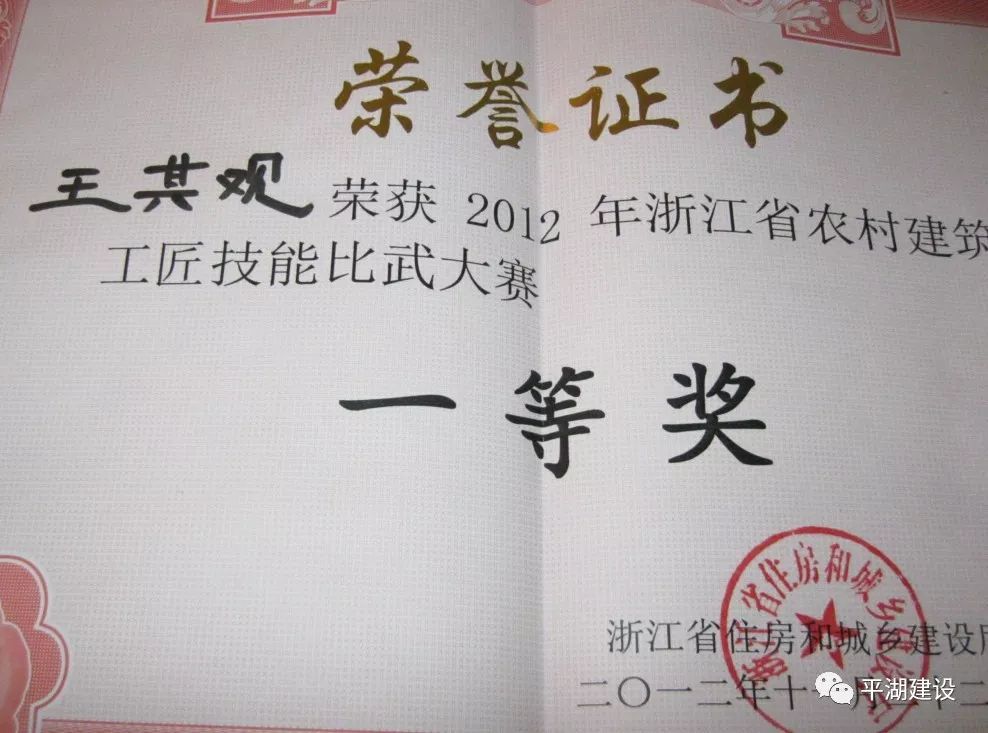 荣誉证书
王其观 荣获 2012 年浙江省农村建筑
工匠技能比武大赛
一等奖
浙江省住房和城乡建设
二〇一二年十月二十二
平湖建设